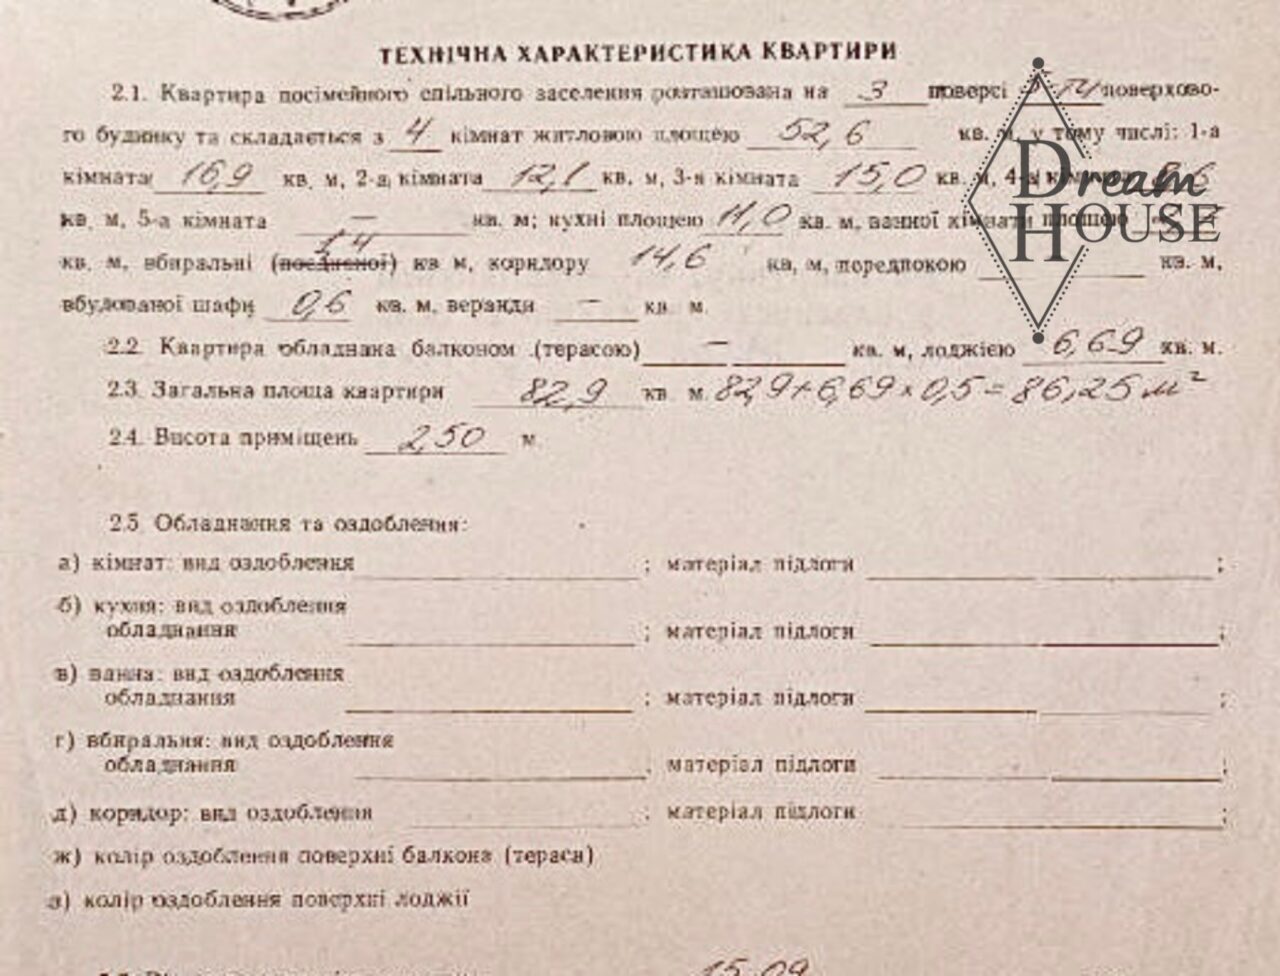 ТЕХНІЧНА ХАРАКТЕРИСТИКА КВАРТИРИ
2.1. Квартира посімейного спільного заселення розташована на 3 поверсі поверхово-
го будинку та складається з 4 кімнат житловою площею 52,6 кв. м, у тому числі: 1-а
кімната 16,9 кв. м, 2-а кімната 12,1 кв. м, 3-я кімната 15,0 кв. м, 4-а
кв. м, 5-а кімната — кв. м; кухні площею 11,0 кв. м, ванної кімнати площею
1,4
кв. м, вбиральні (поєднаної) кв м, коридору 14,6 кв, м, передпокою кв. м,
вбудованої шафи 0,6 кв. м, веранди — кв. м.
2.2. Квартира обладнана балконом (терасою) — кв. м, лоджією 6,69 кв. м.
2.3. Загальна площа квартири 82,9 кв. м. 82,9+6,69×0,5=86,25 м²
2.4. Висота приміщень 2,50 м.
2.5. Обладнання та оздоблення:
а) кімнат: вид оздоблення ; матеріал підлоги ;
б) кухня: вид оздоблення
обладнання ; матеріал підлоги ;
в) ванна: вид оздоблення
обладнання ; матеріал підлоги ;
г) вбиральня: вид оздоблення
обладнання ; матеріал підлоги ;
д) коридор: вид оздоблення ; матеріал підлоги ;
ж) колір оздоблення поверхні балкона (тераси)
з) колір оздоблення поверхні лоджії
15.09
Dream
HOUSE